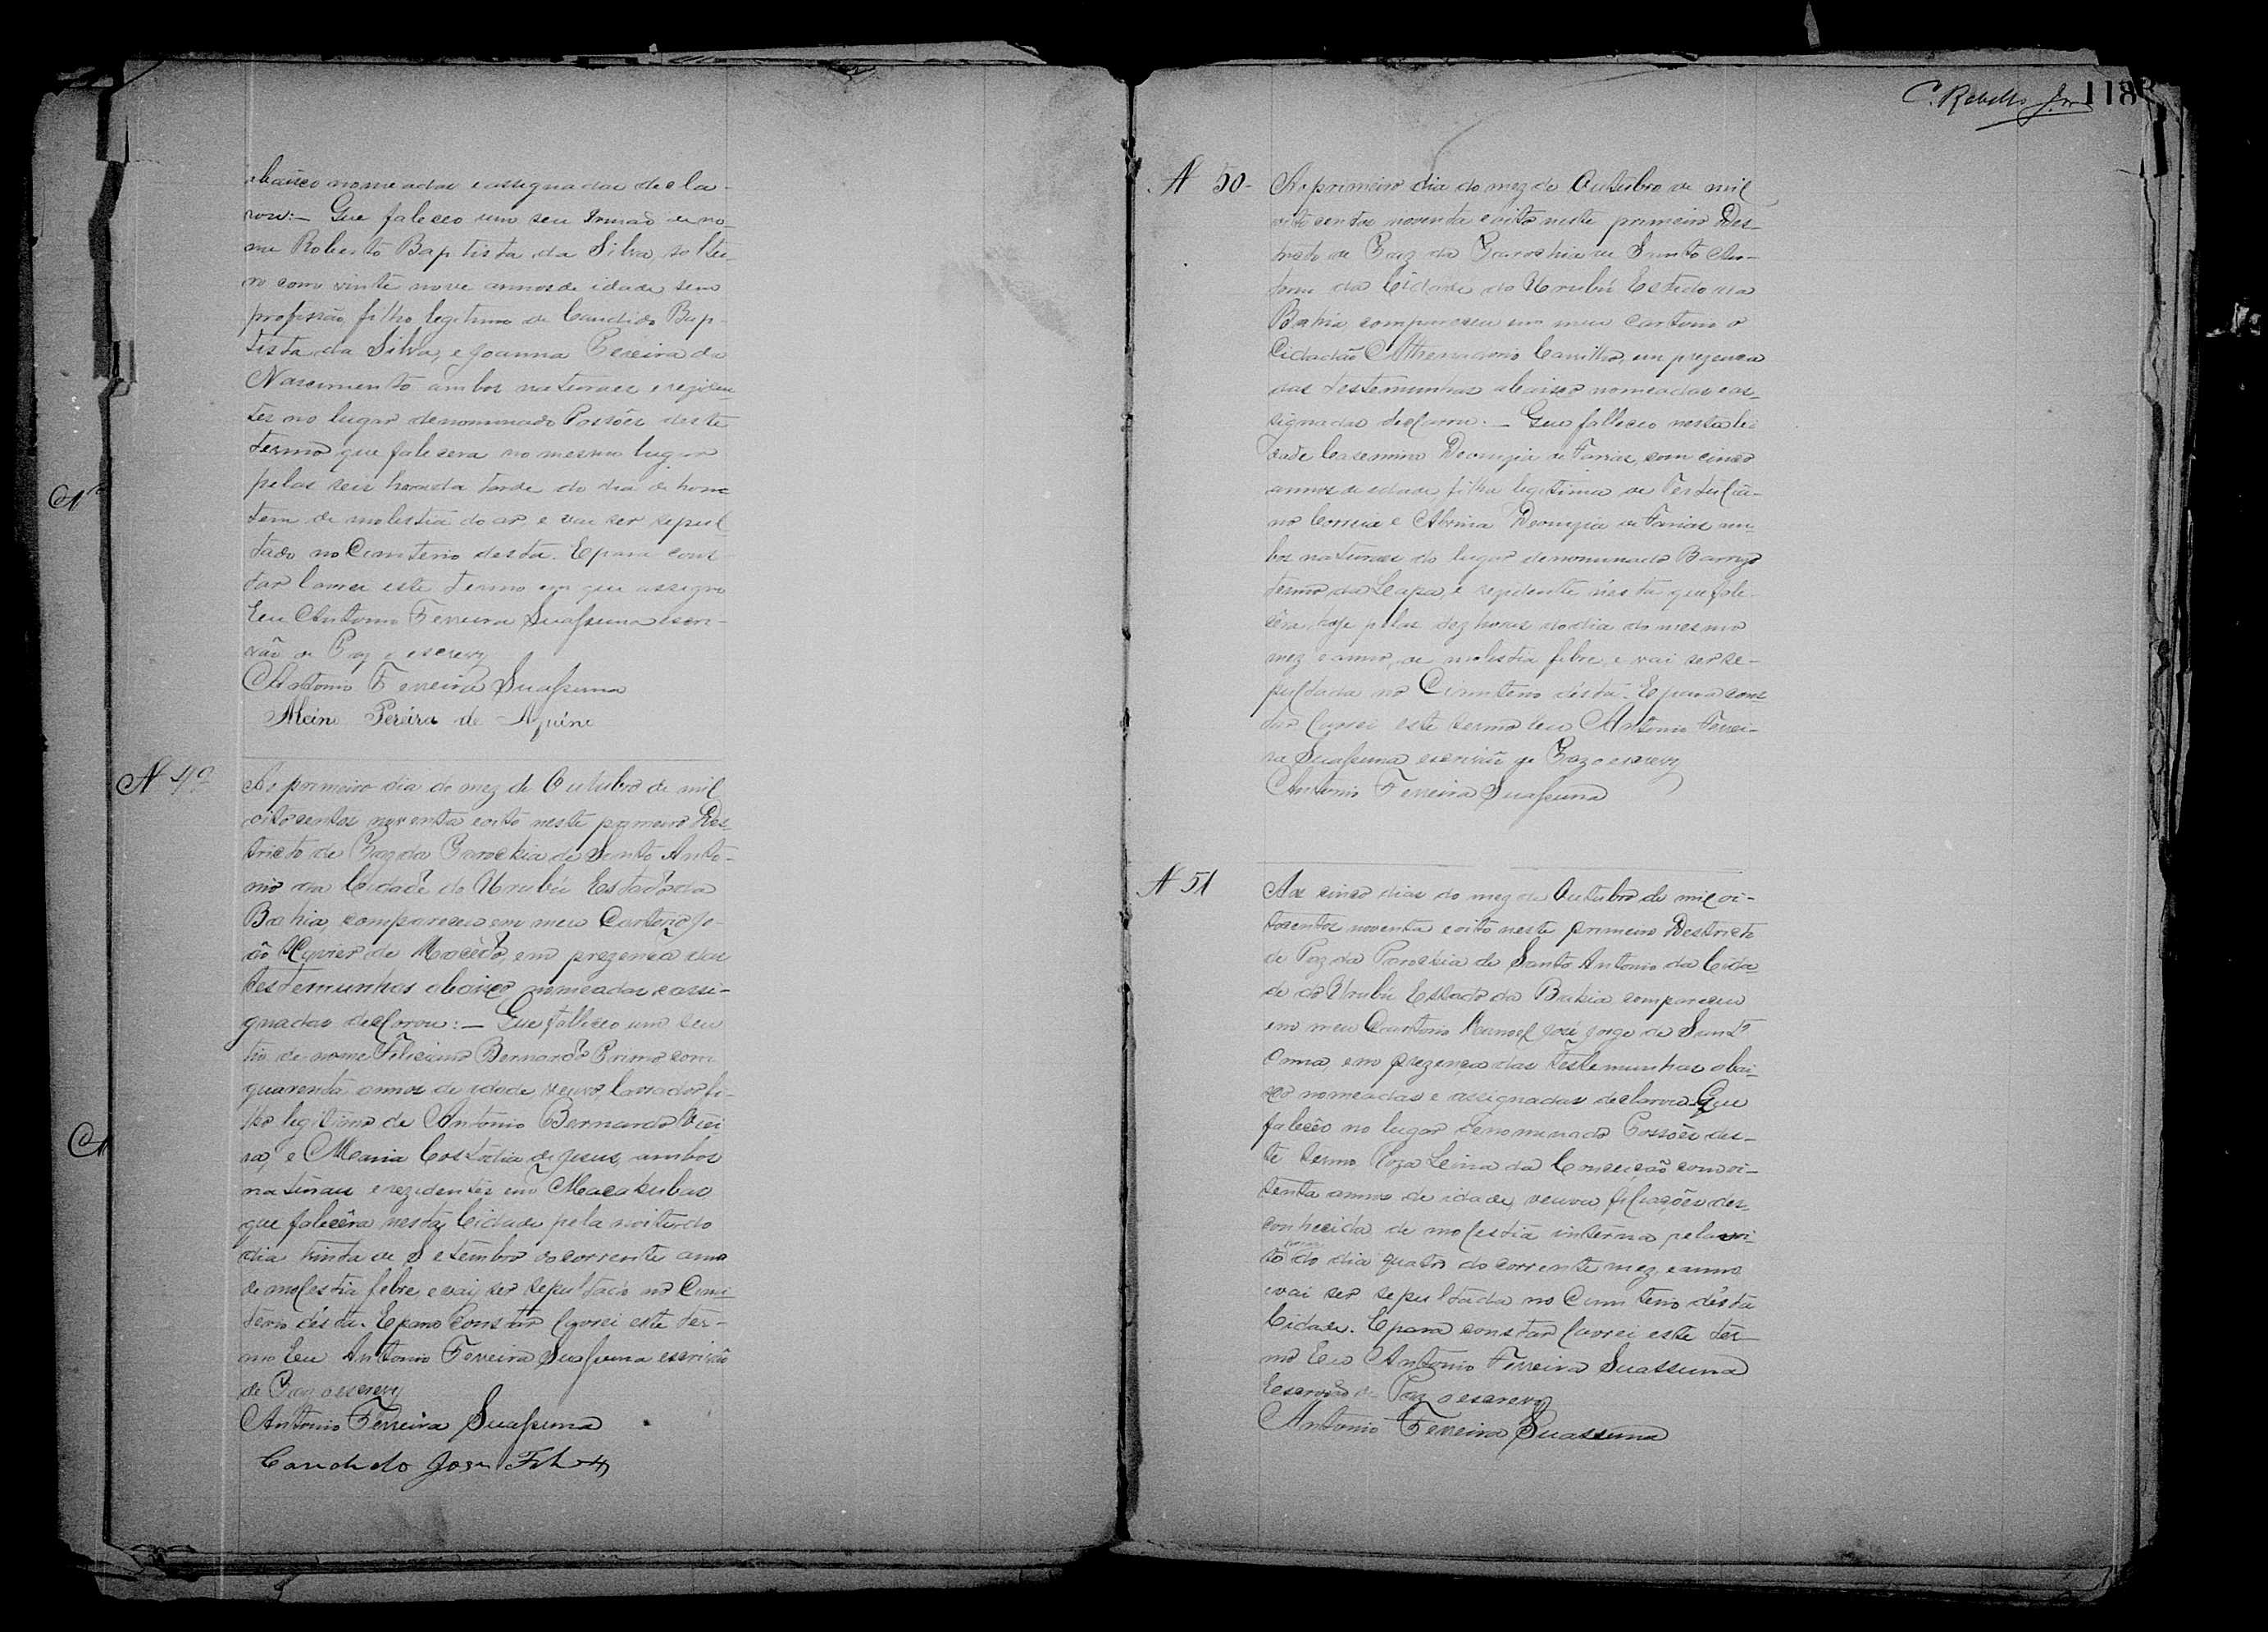 abaixo nomeadas e assignadas decla-
rou:- Que faleceo um seu Irmaõ de no-
me Roberto Baptista da Silva, soltei-
ro com vinte nove annos de idade, sem
profissão, filho legitimo de Candido Bap-
tista da Silva, e Joanna Pereira do
Nascimento ambos naturaes e reziden-
tes no lugar denominado Possões deste
termo que falecera no mesmo lugar
pelas seis hora da tarde do dia de hon-
tem de molestia do ar e vai ser sepul-
tado no Cimiterio desta. E para cons-
tar lavrei este termo em que assigno
Eu Antonio Ferreira Suassuna escri-
vão de Paz o escrevy
Antonio Ferreira Suassuna
Alcino Pereira de Aquino
N 49
Ao primeiro dia do mez de Outubro de mil
oitocentos noventa e oito neste primeiro Des-
tricto de Paz da Parochia de Santo Anto-
nio da Cidade do Urubú Estado da
Bahia, compareceu em meu Cartorio Jo-
ão Xavier de Macêdo, em prezença das
testemunhas abaixo nomeadas e assi-
gnadas declarou:- Que faleceo um seu
tio de nome Feliciano Bernardo Primo com
quarenta annos de idade veuvo, lavrador fi-
lho legitimo de Antonio Bernardo Viei-
ra, e Maria Costodia de Jesus, ambos
naturaes e rezidentes em Macahubas
que falecêra nesta Cidade pela noite do
dia trinta de Setembro do corrente anno
de molestia febre, e vai ser sepultado no Cimi-
terio désta. E para constar lavrei este ter-
mo Eu Antonio Ferreira Suassuna escrivão
de Paz o escrevy
Antonio Ferreira Suassuna
Candido José
C. Rebello Jor 118
N 50-
Ao primeiro dia do mez de Outubro de mil
oito centos noventa e oito neste primeiro Des-
tricto de Paz da Parochia de Santo An-
tonio da Cidade do Urubú Estado da
Bahia compareceu em meu cartorio o
Cidadão Athenadorio Carrilho, em prezença
das testemunhas abaixo nomeadas e as-
signadas declarou:- Que falleceo nesta Ci-
dade Casemira de Farias, com cinco
annos de idade, filha legitima de Tertulia-
no Correia e de Farias am-
bos naturaes do lugar denominado
termo da Lapa, e rezidente nésta que fale-
cêra hoje pelas dez horas do dia do mesmo
mez e anno, de molestia febre, e vai ser se-
pultada no Cimiterio désta. E para cons-
tar lavrei este termo Eu Antonio Ferrei-
ra Suassuna escrivão de Paz o escrevy
Antonio Ferreira Suassuna
N 51
Aos cinco dias do mez de Outubro de mil oi-
tocentos noventa e oito neste primeiro Destricto
de Paz da Parochia de Santo Antonio da Cida-
de do Urubú Estado da Bahia compareceu
em meu Cartorio Manoel José Jorge de Santo
Anna, em prezença das testemunhas abai-
xo nomeadas e assignadas declarou. Que
falecêo no lugar denominado Possões des-
te termo Roza Leina da Conceicão com oi-
tenta annos de idade, veuva, filiações des-
conhecida de molestia interna pela noi-
te do dia quatro do corrente mez e anno
e vai ser sepultada no Cimiterio désta
Cidade. E para constar lavrei este ter-
mo Eu Antonio Ferreira Suassuna
Escrivão de Paz o escrevy
Antonio Ferreira Suassuna